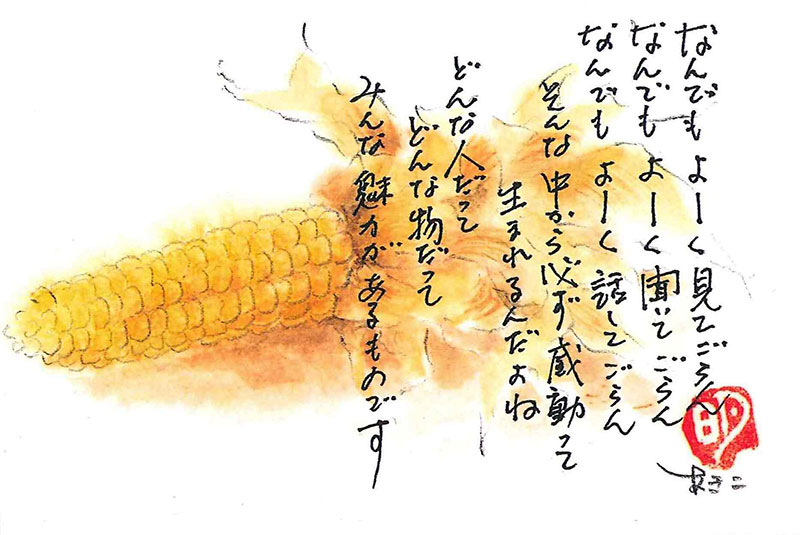 なんでも よーく 見てごらん
なんでも よーく 聞いてごらん
なんでも よーく 話してごらん
そんな中から必ず感動って
生まれるんだよね
どんな人だって
どんな物だって
みんな魅力があるものです
あきこ